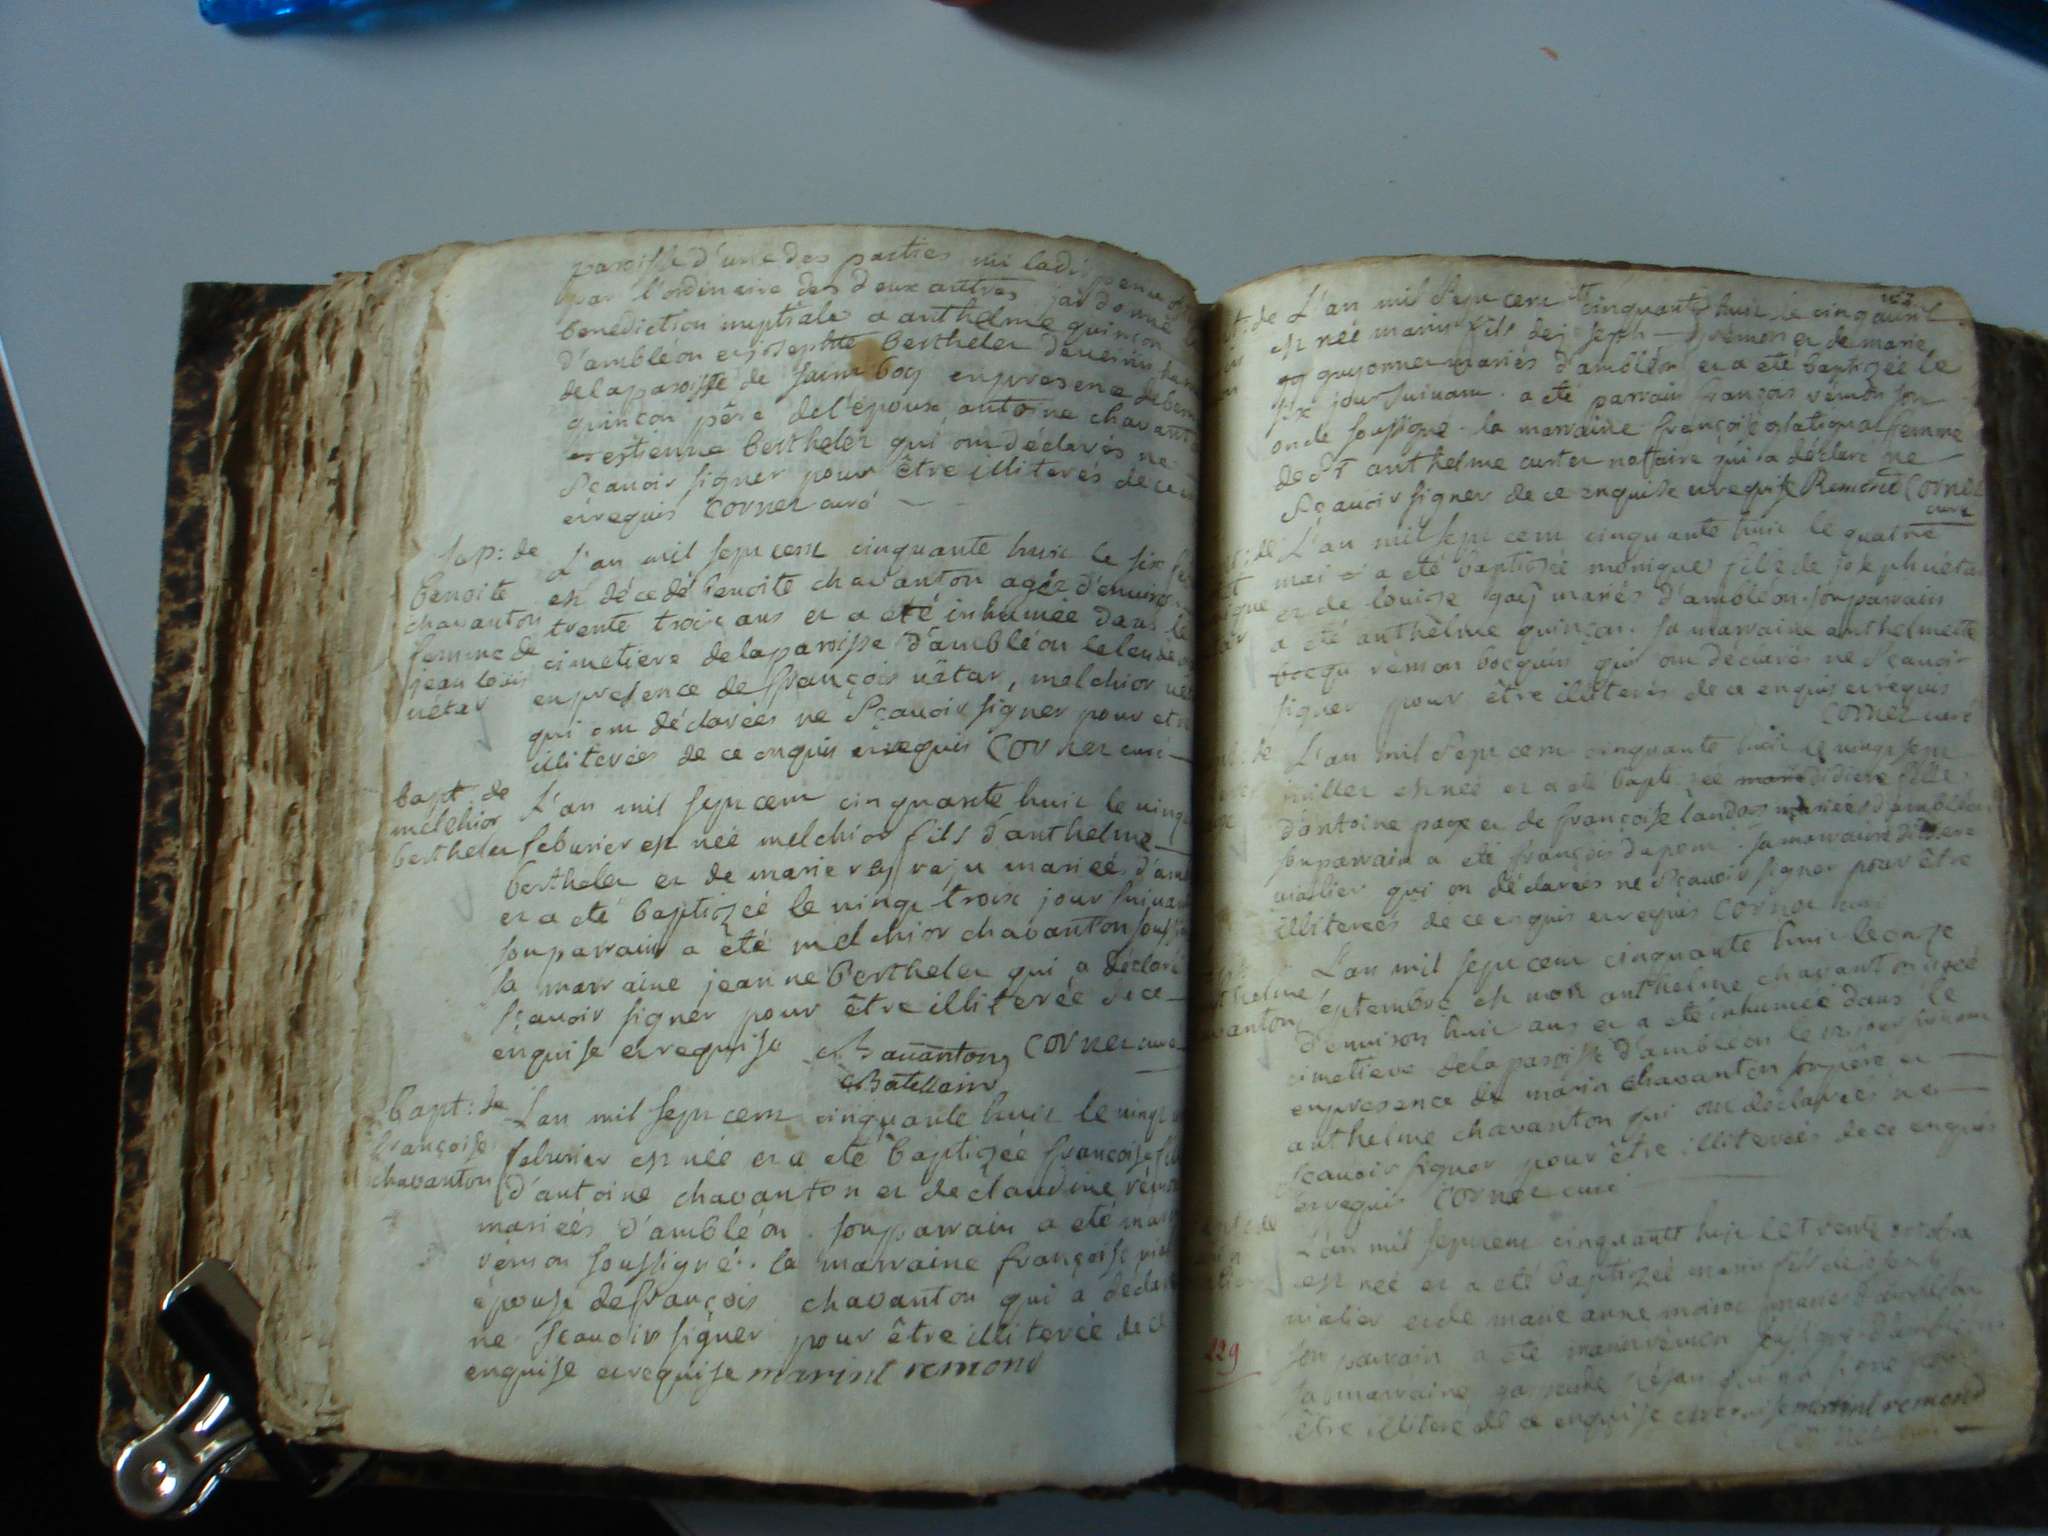 paroisse d'une des parties ni la dispence
par l'ordinaire des deux autres jai donné
benediction nuptiale a anthelme quinçon
d'ambléon et josephte berthelet
de la paroisse de saint boy en presence de
quincon père de l'epoux antoine chavant
et estienne berthelet qui ont déclarés ne
sçauoir signer pour être illiterés de ce
et requis Cornet curé
Sep: de
benoite
chavanton
femme de
jean louis
uétar
L'an mil sept cent cinquante huit le six
est décedé benoite chavanton agée d'enuiron
trente trois ans et a eté inhumée dans le
cimetiere de la paroisse d'ambléon le lendem
en presence de françois uétar, melchior uét
qui ont déclarées ne sçauoir signer pour etr
illiterées de ce enquis et requis Cornet curé
bapt de
melchior
berthelet
L'an mil sept cent cinquante huit le uingt
feburier est née melchior fils d'anthelme
berthelet et de marie rey raju mariées d'am
et a eté baptizéé le uingt trois jour suiuan
son parrain a été melchior chavanton souss
la marraine jeanne berthelet qui a déclaré
sçauoir signer pour être illiterée de ce
enquise et requise Chauanton Cornet curé
Chatillain
bapt: de
françoise
chavanton
L'an mil sept cent cinquante huit le uingt
feburier est néé et a eté baptizéé françoise fil
d'antoine chavanton et de claudine rémon
mariéés d'ambléon. son parrain a eté marin
rémon soussigné. la marraine françoise
épouse de françois chavanton qui a declaré
ne sçauoir signer pour être illiterée de ce
enquise et requise marint remond
L'an mil sept cent cinquante huit le cinq auril
est née marin fils de joseph rémon et de marie
guyonnet mariés d'ambléon et a eté baptizéé le
six jour suiuant. a eté parrain françois rémon son
oncle soussigné. la marraine françoise femme
de Sr anthelme curtet nottaire qui a déclaré ne
sçauoir signer de ce enquise et requise Remond Cornet
curé
L'an mil sept cent cinquante huit le quatre
mai a eté baptizéé monique fille de joseph uétar
et de louise gay mariés d'ambléon. son parrain
a eté anthelme quinçon. sa marraine anthelmette
bocqu rémon bocquin qui ont déclarés ne sçauoir
signer pour être illiterés de ce enquis et requis
Cornet curé
L'an mil sept cent cinquante huit le uingt sept
juillet est néé et a eté baptizéé marie didiere fille
d'antoine page et de françoise landos mariées d'ambléon
son parrain a eté françois dupont. sa marraine didiere
uialier qui on déclarées ne sçauoir signer pour être
illiterées de ce enquis et requis Cornet curé
anthelme
chavanton
L'an mil sept cent cinquante huit le onze
septembre est mort anthelme chavanton agéé
d'enuiron huit ans et a eté inhumée dans le
cimetiere de la paroisse d'ambléon le jour suiuant
en presence de marin chavanton son père et
anthelme chavanton qui ont déclarées ne
sçauoir signer pour être illiterées de ce enquis
et requis Cornet curé
229
L'an mil sept cent cinquante huit le trente octobre
est née et a eté baptizéé marin fils de joseph
uialier et de marie anne moine mariés d'ambléon
son parrain a eté marin rémon soussigné d'ambléon
sa marraine
être illiteré de ce enquise et requise marint remond
Cornet curé